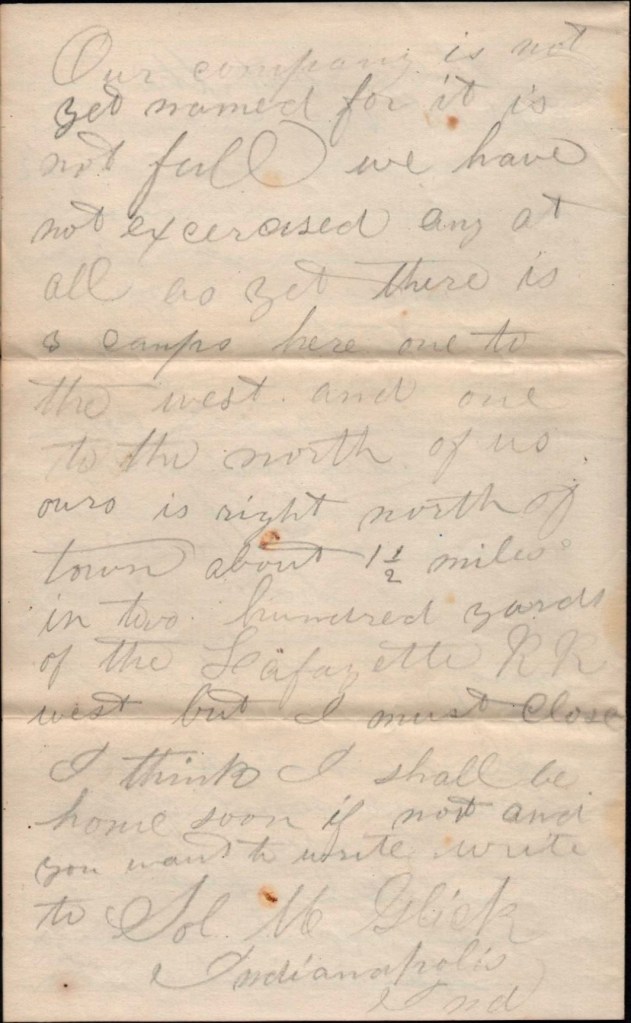 Our company is not
yet named for it is
not full we have
not excercised any at
all as yet there is
3 camps here one to
the west and one
to the north of us
ours is right north of
town about 1 1/2 miles
in two hundred yards
of the Lafayette R R
west but I must close
I think I shall be
home soon if not and
you want to write write
to Sol. M Glick
Indianapolis
Ind